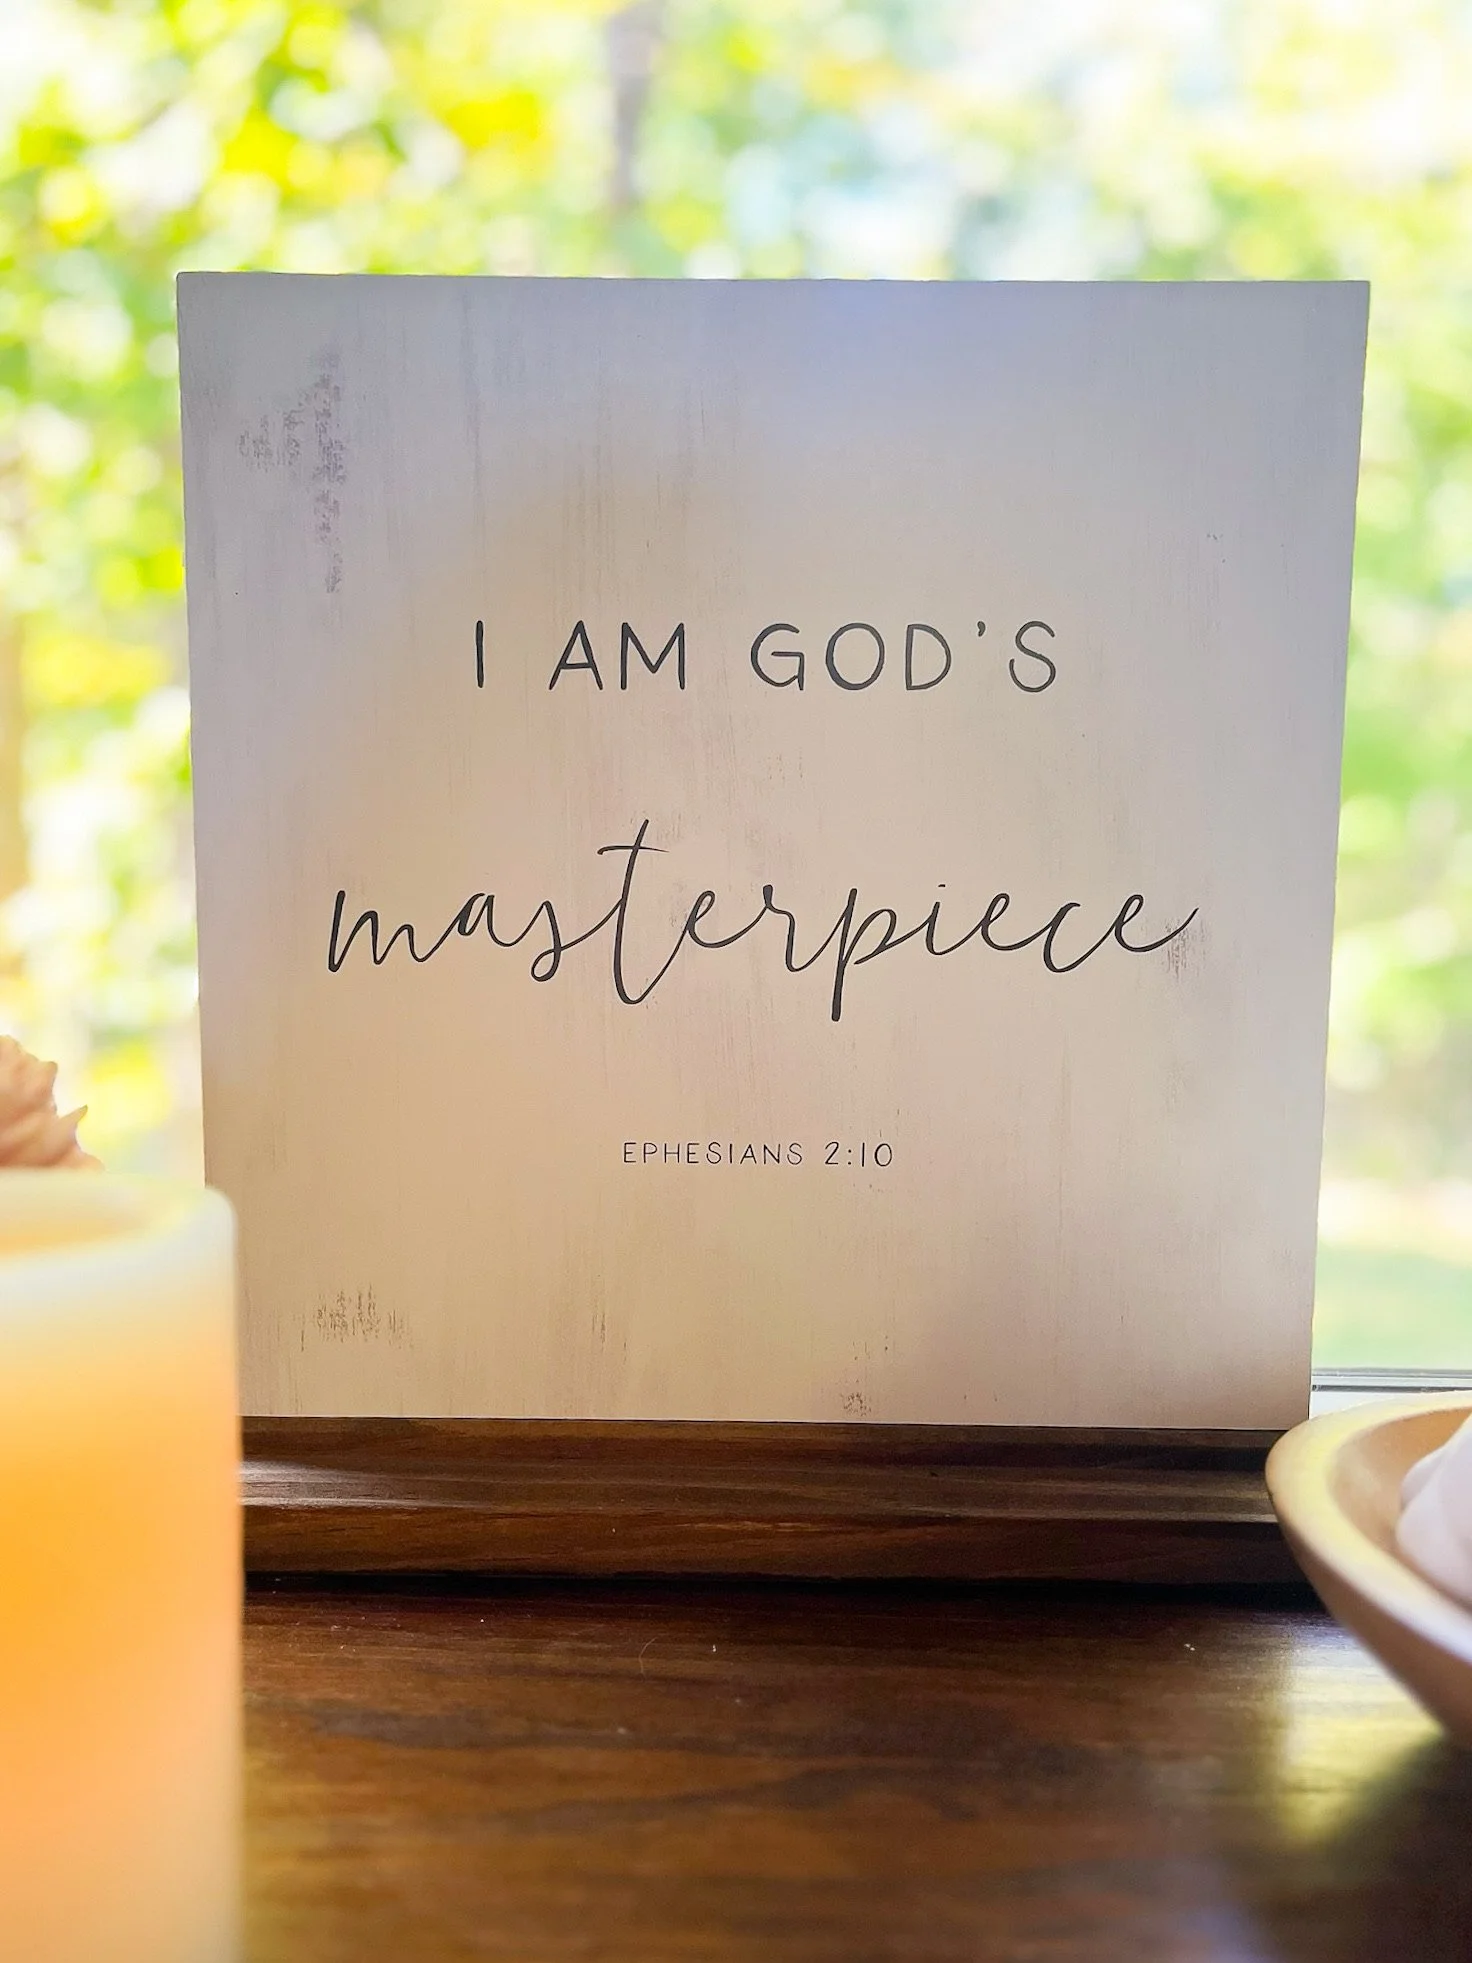 I AM GOD'S
masterpiece
EPHESIANS 2:10